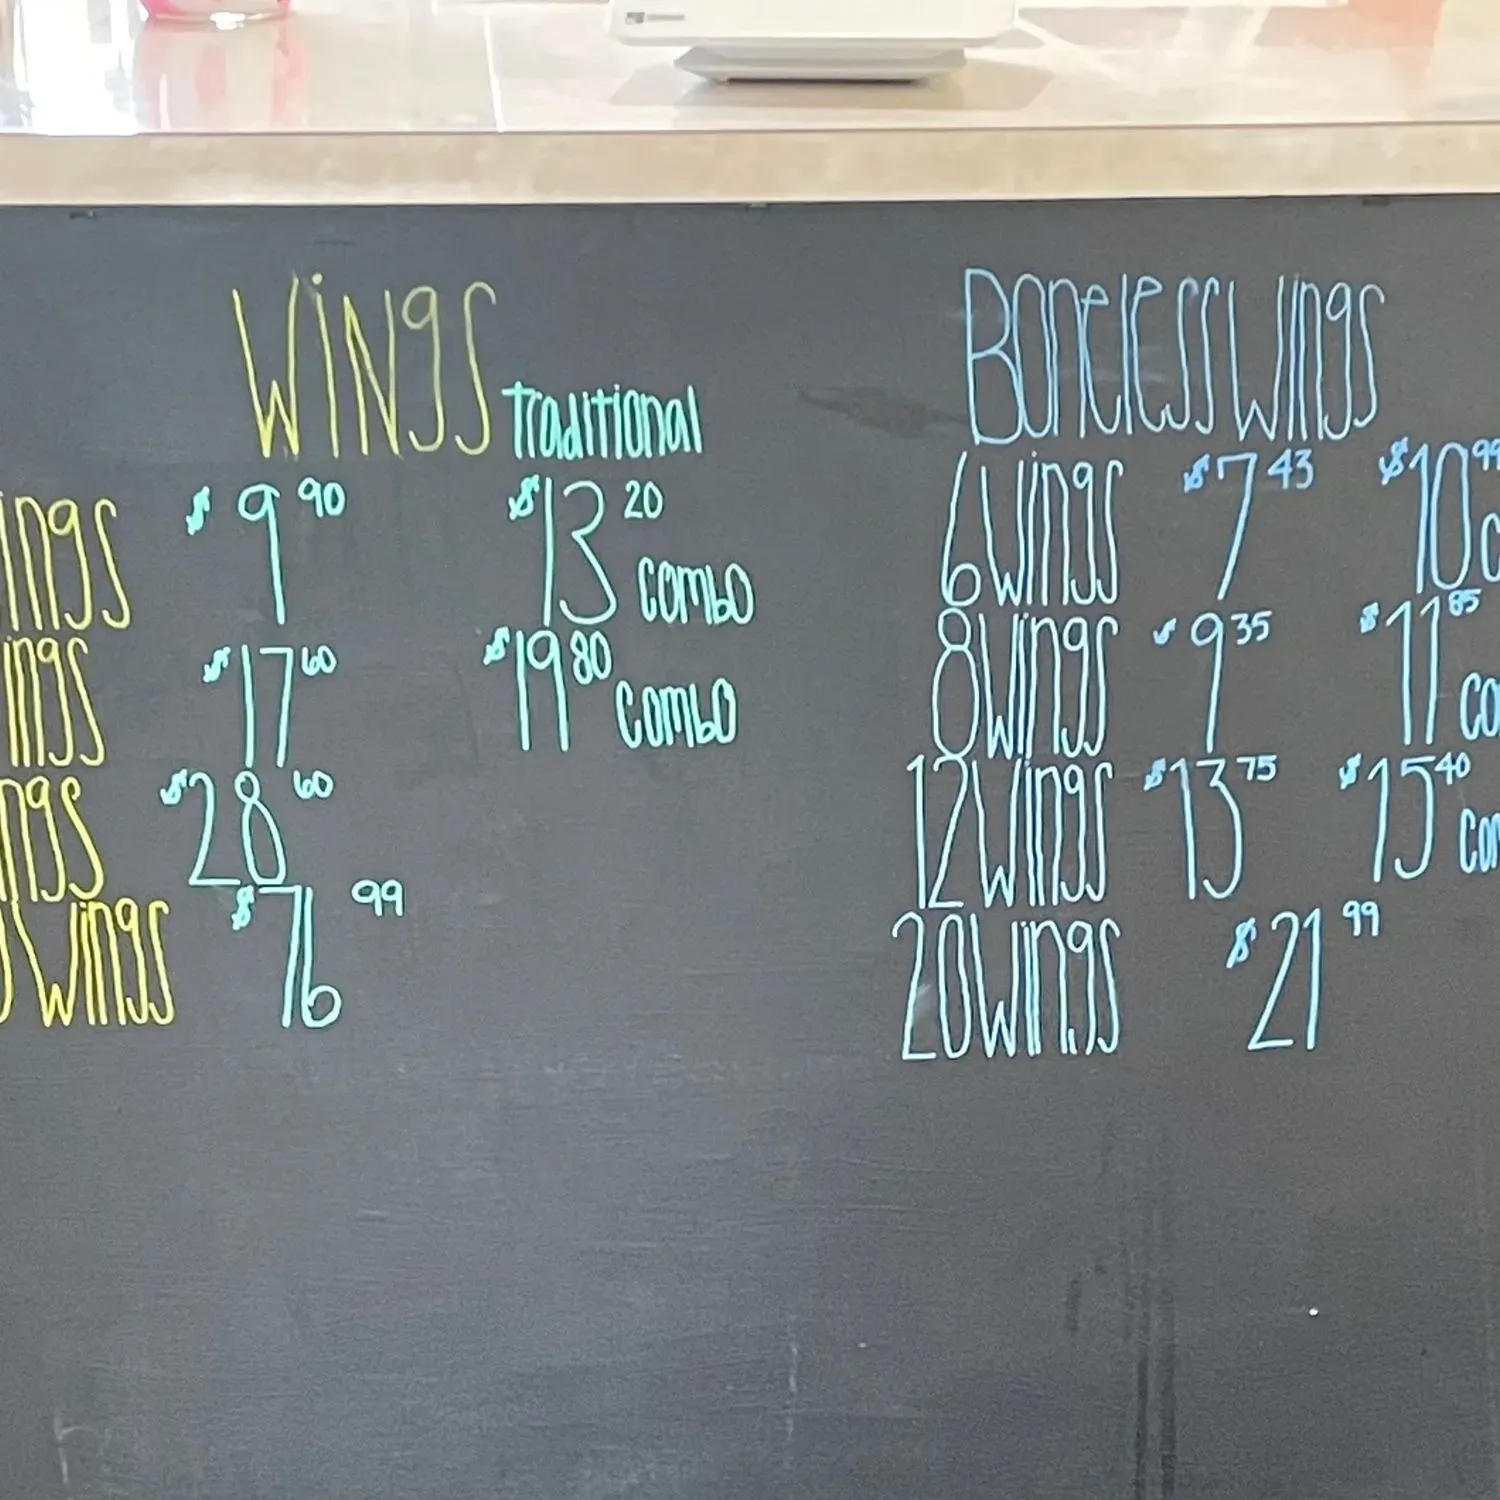 WiNgS traditional
ings $9 90 $13 20 combo
ings $17 60 $19 80 combo
ngs $28 60
Wings $76 99
Boneless Wings
6 Wings $7 43 $10 99
8 Wings $9 35 $11 85 co
12 Wings $13 75 $15 40 com
20 Wings $21 99